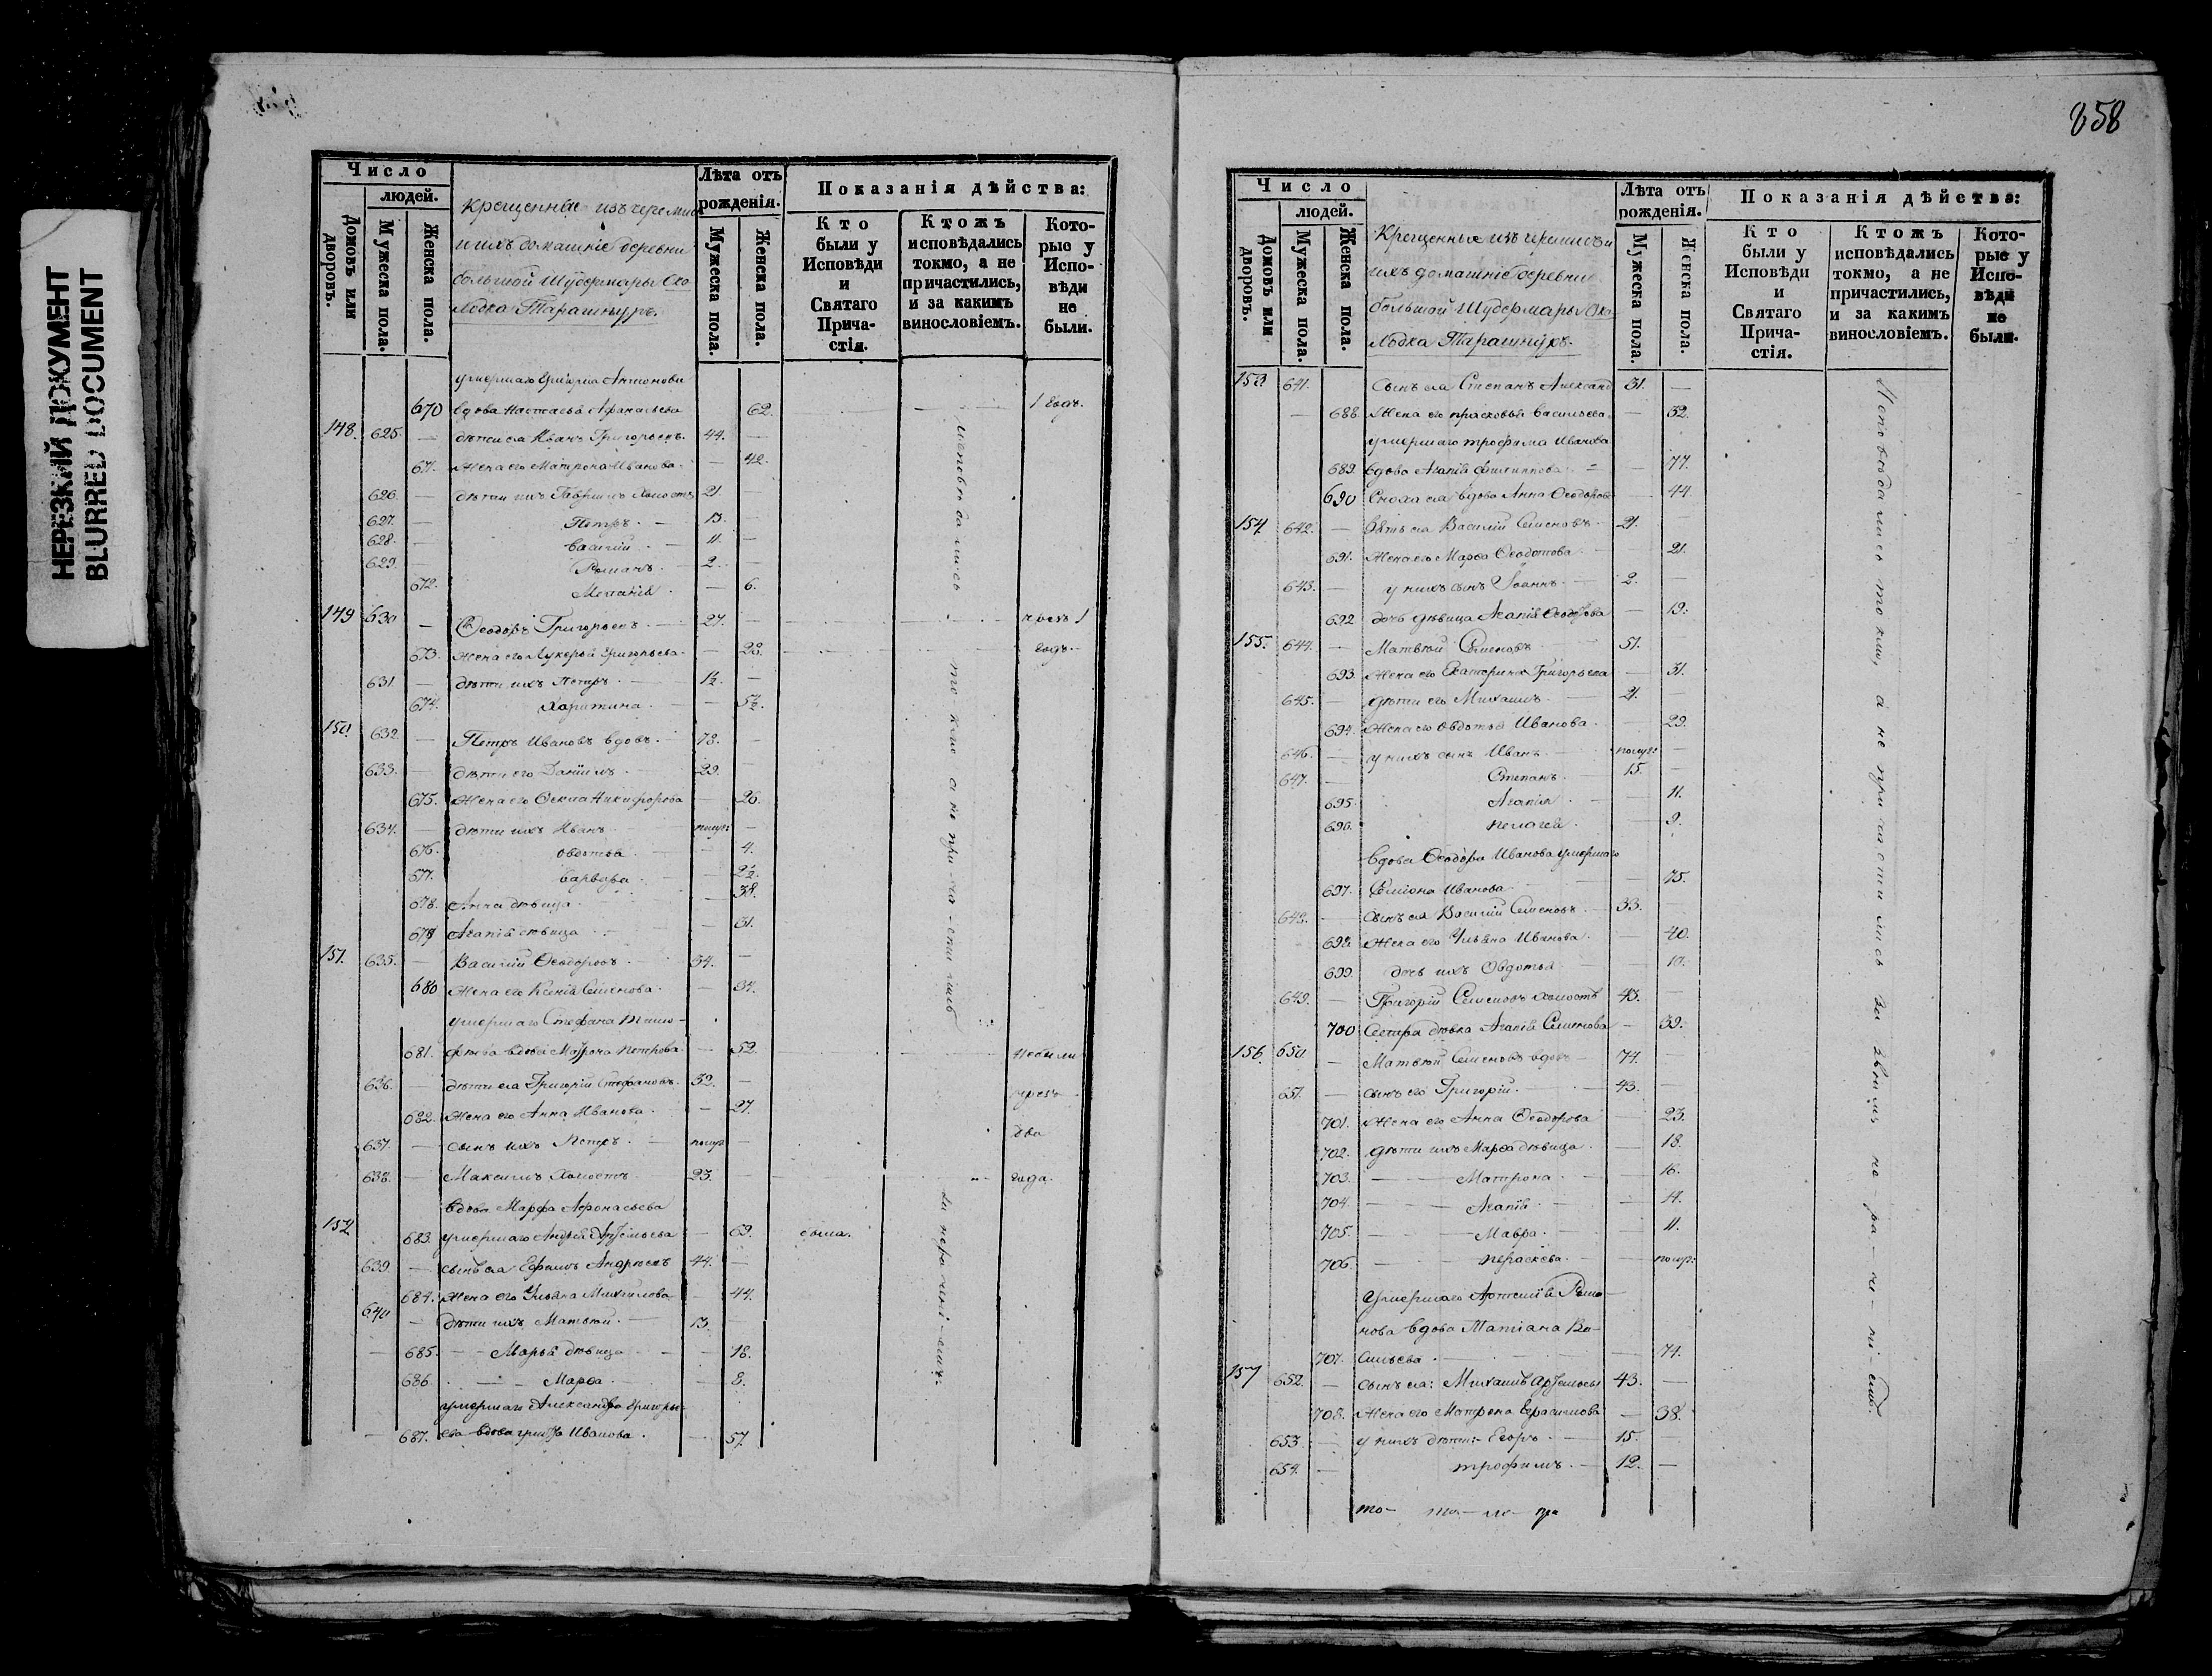 НЕРЕЗКИЙ ДОКУМЕНТ
BLURRED DOCUMENT
Число
людей.
Домовъ или дворовъ.
Мужеска пола.
Женска пола.
Крещенные изъ черемис
и ихъ домашніе деревни
большой Шудермары Око
лодка Тарашнуръ.
Лѣта отъ
рожденія.
Мужеска пола.
Женска пола.
Показанія дѣйства:
Кто
были у
Исповѣди
и
Святаго
Прича-
стія.
Ктожъ
исповѣдались
токмо, а не
причастились,
и за какимъ
винословіемъ.
Кото-
рые у
Испо-
вѣди
не
были.
умершаго Григорья Антонова
670 вдова Настасья Афанасьева — 62. 1 годъ.
148. 625. — дѣти ея Иванъ Григорьевъ. 44. —
671. Жена его Матрона Иванова. — 42.
626. — дѣти ихъ Гаврилъ холостъ 21. —
627. — Петръ. — 13. —
628. — Василій — 11. —
629. — Романъ. — 2. —
672. Меланія. — 6.
149 630 — Ѳеодоръ Григорьевъ. 27. — чрезъ 1
673. Жена его Лукерья Григорьева — 28. годъ.
631. — дѣти ихъ Петръ. 1½. —
674. Харитина. — 5½.
150. 632. — Петръ Ивановъ вдовъ. 73. —
633. — дѣти его Даніилъ. 29. —
675. Жена его Ѳекла Никифорова — 26.
634. — дѣти ихъ Иванъ полуг: —
676. Овдотья — 4.
677. Варвара. — 2½.
678. Анна дѣвица — 38.
679 Агапія дѣвица — 31.
151. 635. — Василій Ѳеодоровъ. 34. —
680 Жена его Ксенія Семенова. — 34.
умершаго Стефана Тимо-
681. фѣева вдова Матрона Петрова — 52. небыли
636. — дѣти ея Григорій Стефановъ. 32. — чрезъ
682. Жена его Анна Иванова. — 27.
637. — сынъ ихъ Петръ. полуг — два
638. — Максимъ холостъ. 23. — года.
Вдова Марфа Афонасьева
152 683. умершаго Андрея Артемьева — 69. была.
639. — сынъ ея Ефимъ Андреевъ 44. —
684. Жена его Ульяна Михайлова — 44.
640 — дѣти ихъ Матвѣй. 13. —
685. Марья дѣвица — 18.
686. Марѳа. — 8.
умершаго Александра Григорье-
687. ва вдова Иванова. — 57.
исповѣдались то-кмо а не при-ча-стились
за нера-чені-емъ.
858
Число
людей.
Домовъ или дворовъ.
Мужеска пола.
Женска пола.
Крещенные изъ черемисъ и
ихъ домашніе деревни
большой Шудермары Око
лодка Тарашнуръ.
Лѣта отъ
рожденія.
Мужеска пола.
Женска пола.
Показанія дѣйства:
Кто
были у
Исповѣди
и
Святаго
Прича-
стія.
Ктожъ
исповѣдались
токмо, а не
причастились,
и за какимъ
винословіемъ.
Кото-
рые у
Испо-
вѣди
не
были.
153 641. Сынъ ея Степанъ Александ 31. —
— 688. Жена его Прасковья Васильева. — 32.
умершаго Трофима Иванова
689. вдова Агапія Филиппова — 77.
690 Сноха ея вдова Анна Ѳеодорова — 44.
154 642. — Зять ея Василій Семеновъ. 21. —
691. Жена его Марѳа Ѳеодотова — 21.
643. — у нихъ сынъ Іоаннъ. 2. —
692 дочь дѣвица Агапія Ѳеодорова — 19.
155. 644. — Матвѣй Семеновъ 51. —
693. Жена его Екатерина Григорьева — 31.
645. — дѣти его Михаилъ. 21. —
694. Жена его Овдотья Иванова. — 29.
646. — у нихъ сынъ Иванъ. полуг: —
647. — Степанъ. 15. —
695. Агапія. — 11.
696. Пелагея. — 9.
Вдова Ѳеодора Иванова умершаго
697. Иванова. — 75.
648. — сынъ ея Василій Семеновъ. 33. —
698. Жена его Ульяна Иванова. — 40.
699. дочь ихъ Овдотья — 10.
649. — Григорій Семеновъ холостъ 43. —
700 Сестра дѣвка Агапія Семенова — 39.
156. 650. — Матвѣй Семеновъ вдовъ 74. —
651. — сынъ его Григорій. 43. —
701. Жена его Анна Ѳеодорова — 23.
702. дѣти ихъ Марѳа дѣвица. — 18.
703. Матрона. — 16.
704. Агапія. — 14.
705. Мавра. — 11.
706 Параскева. — полуг:
Умершаго Артемія Рома-
нова вдова Татіана Ва-
707. сильева. — 74.
157 652. — сынъ ея: Михаилъ Артемьевъ 43. —
708. Жена его Матрона Герасимова — 38.
653. — у нихъ дѣти: Егоръ. 15. —
654. — Трофимъ. 12. —
Исповѣдались токмо, а не причастились за не ра-че-ні-емъ.